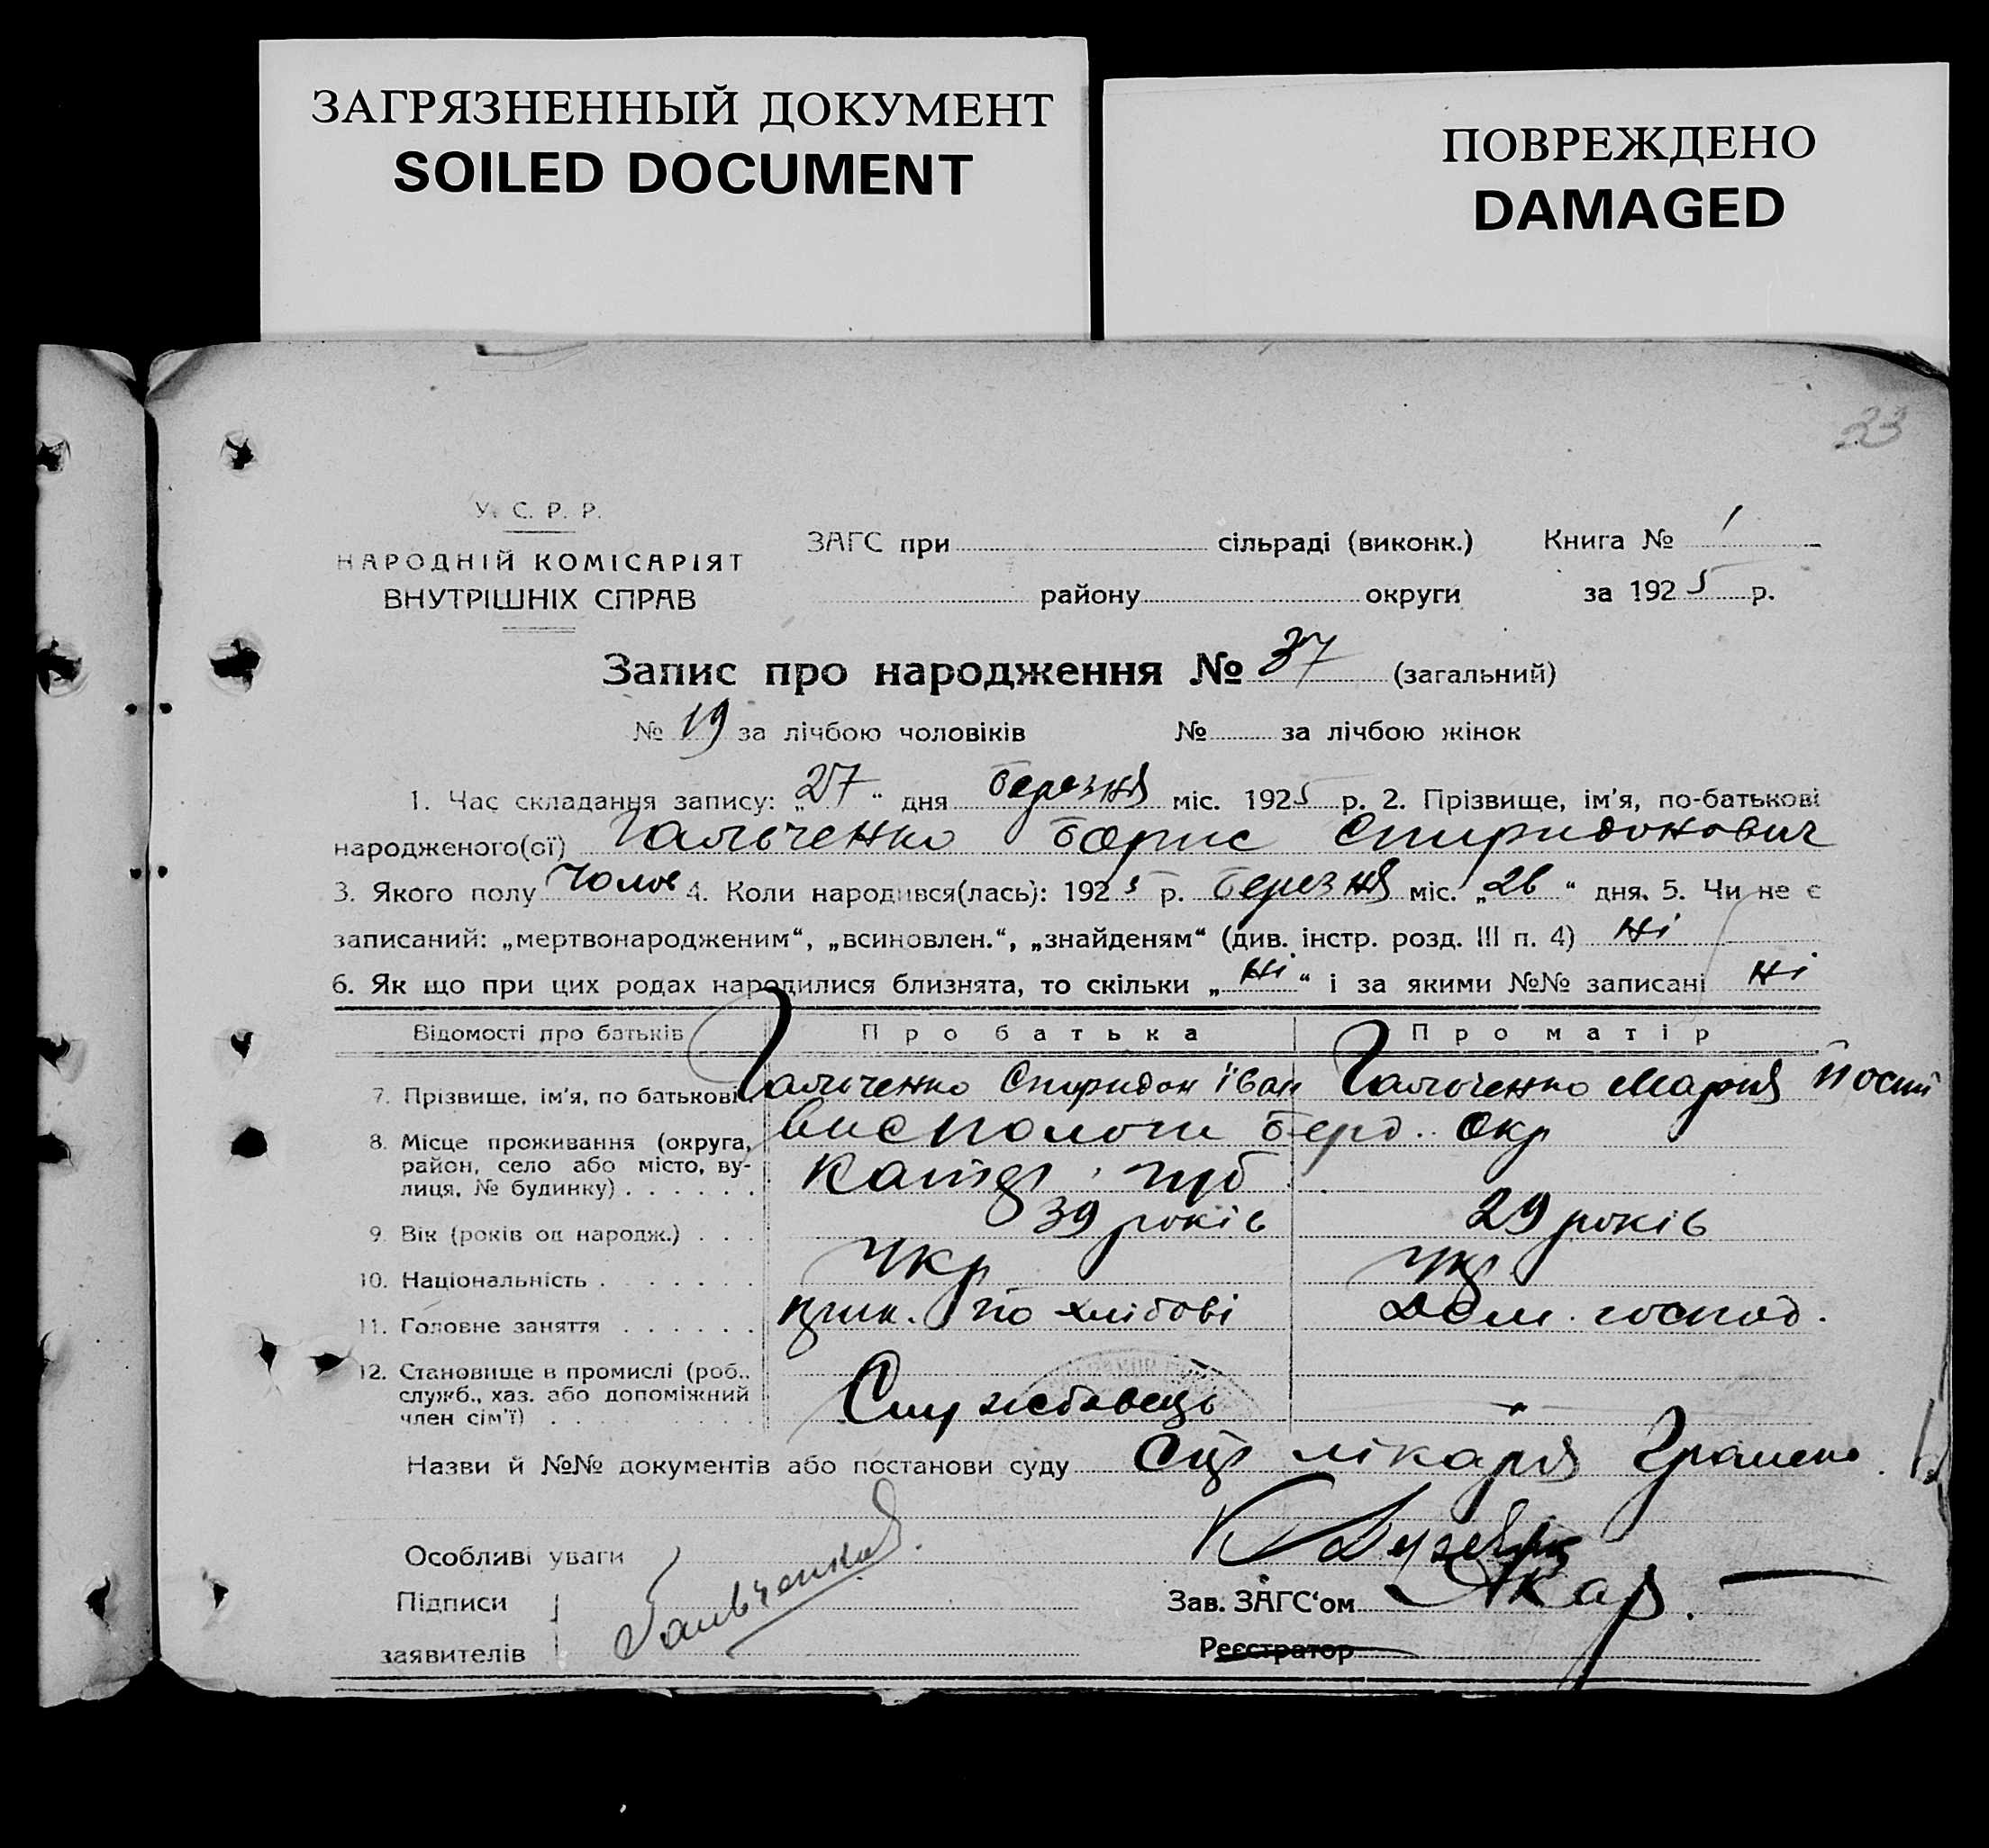 ЗАГРЯЗНЕННЫЙ ДОКУМЕНТ
SOILED DOCUMENT
ПОВРЕЖДЕНО
DAMAGED
23
У. С. Р. Р.
НАРОДНІЙ КОМІСАРІЯТ
ВНУТРІШНІХ СПРАВ
ЗАГС при сільраді (виконк.) Книга № 1
району округи за 1925 р.
Запис про народження № 37 (загальний)
№ 19 за лічбою чоловіків № за лічбою жінок
1. Час складання запису: „27“ дня березня міс. 1925 р. 2. Прізвище, ім'я, по-батькові
народженого(ої) Гальченко Борис Спиридонович
3. Якого полу Чолов 4. Коли народився(лась): 1925 р. березня міс. „26“ дня. 5. Чи не є
записаний: „мертвонародженим“, „всиновлен.“, „знайденям“ (див. інстр. розд. III п. 4) Ні
6. Як що при цих родах народилися близнята, то скільки „Ні“ і за якими №№ записані Ні
Відомості про батьків Про батька Про матір
7. Прізвище, ім'я, по батькові Гальченко Спиридон Іван Гальченко Мария Йосип
8. Місце проживання (округа, район, село або місто, вулиця, № будинку) Берд. Окр
губ
9. Вік (років од народж.) 39 років 29 років
10. Національність Укр Укр
11. Головне заняття по хлібові Дом. господ.
12. Становище в промислі (роб., служб., хаз. або допоміжний член сім'ї) Службовець "
Назви й №№ документів або постанови суду лікаря
Особливі уваги
Підписи
заявителів Гальченко
Зав. ЗАГС‘ом
Реєстратор